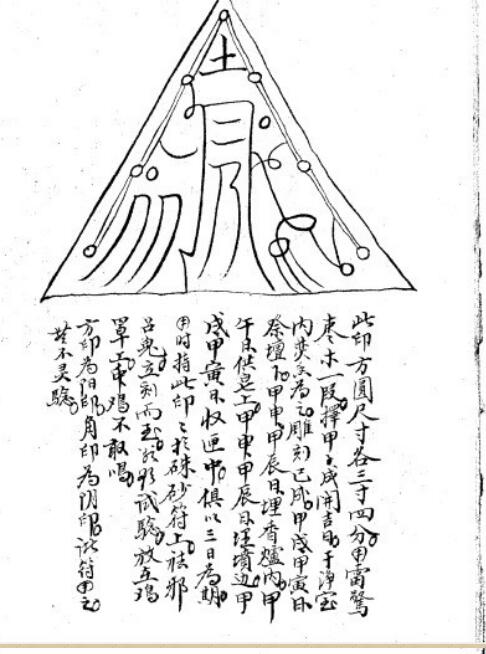 土
此印方圆尺寸各三寸四分用雷驚
枣木一段擇甲子成開吉日于淨室
内焚香為之雕刻已成甲戌甲寅日
祭壇下甲申甲辰日埋香爐内甲
午日供皂上甲申甲辰日埋墳边甲
戌甲寅日收匣中俱以三日為期
用時持此印印於硃砂符上祛邪
吕鬼立刻而至試驗放在鸡
罩上中鸡不敢鳴
方印為阳印角印為阴印符用之
不灵驗